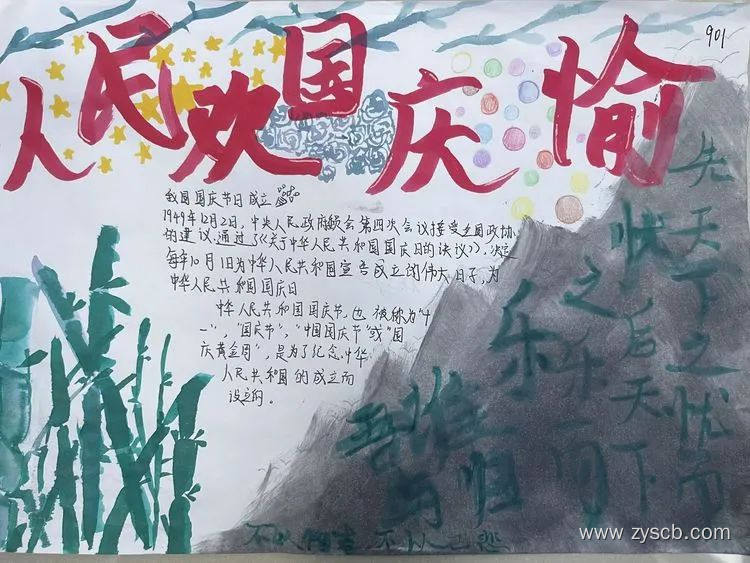 901
人民欢国庆愉
我国国庆节日成立
1949年12月2日,中央人民政府会第四次会议接受全国政协
的建议,通过了《关于中华人民共和国国庆日的决议》,决定
每年10月1日为中华人民共和国宣告成立的伟大日子,为
中华人民共和国国庆日
中华人民共和国国庆节,也被称为"十
一","国庆节","中国国庆节"或"国
庆黄金周",是为了纪念中华
人民共和国的成立而
设立的。
先天下之忧而
忧后天下
之乐而
乐
吾谁
与归
不以物喜 不以己悲
www.zyscb.com